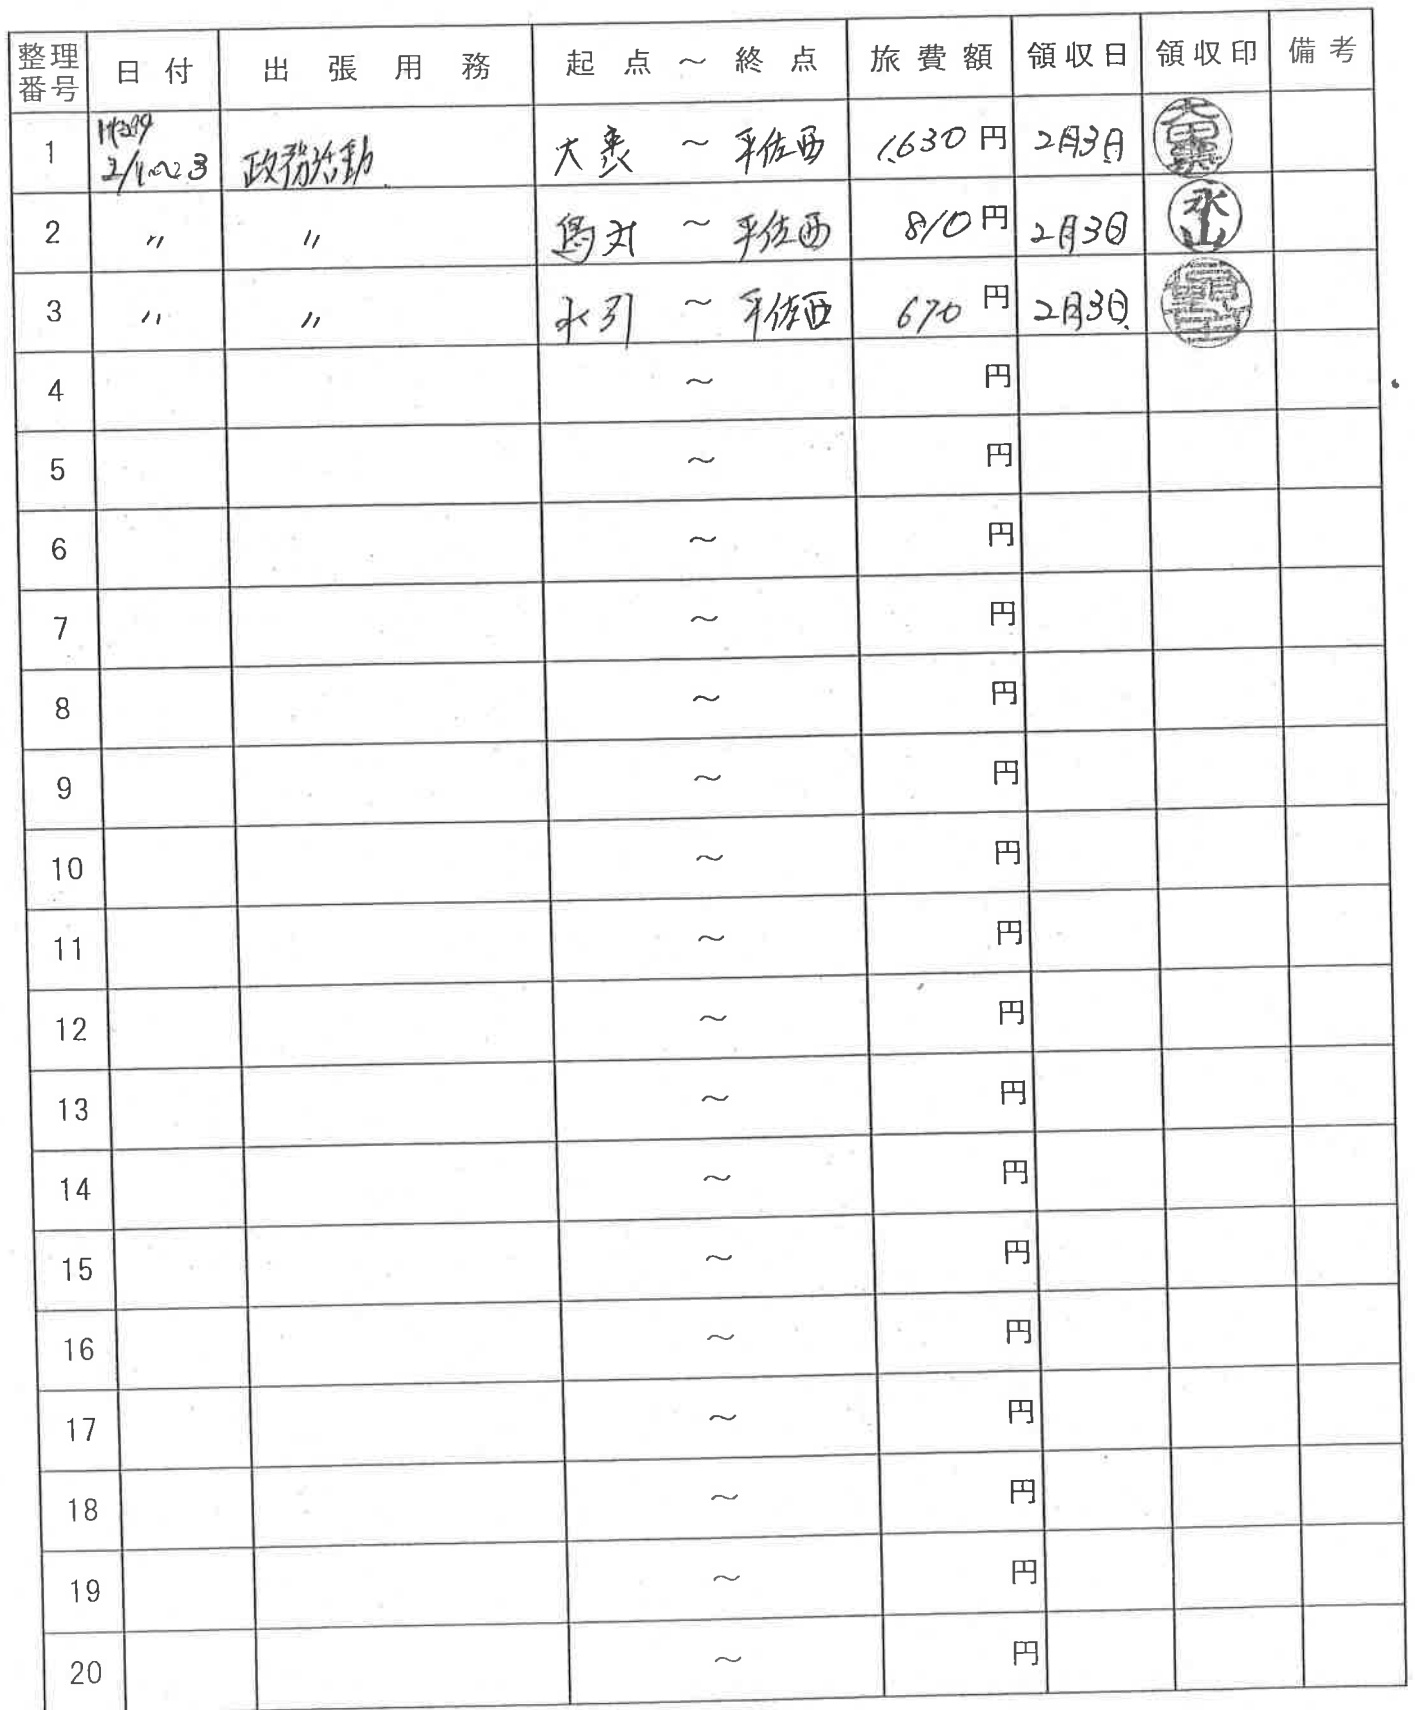 整理番号 日付 出張用務 起点～終点 旅費額 領収日 領収印 備考
1 2/1〜2/3 政務活動 大裏 ～ 平佐西 1,630円 2月3日
2 〃 〃 ～ 平佐西 810円 2月3日 永山
3 〃 〃 水引 ～ 平佐西 670円 2月3日
4 ～ 円
5 ～ 円
6 ～ 円
7 ～ 円
8 ～ 円
9 ～ 円
10 ～ 円
11 ～ 円
12 ～ 円
13 ～ 円
14 ～ 円
15 ～ 円
16 ～ 円
17 ～ 円
18 ～ 円
19 ～ 円
20 ～ 円